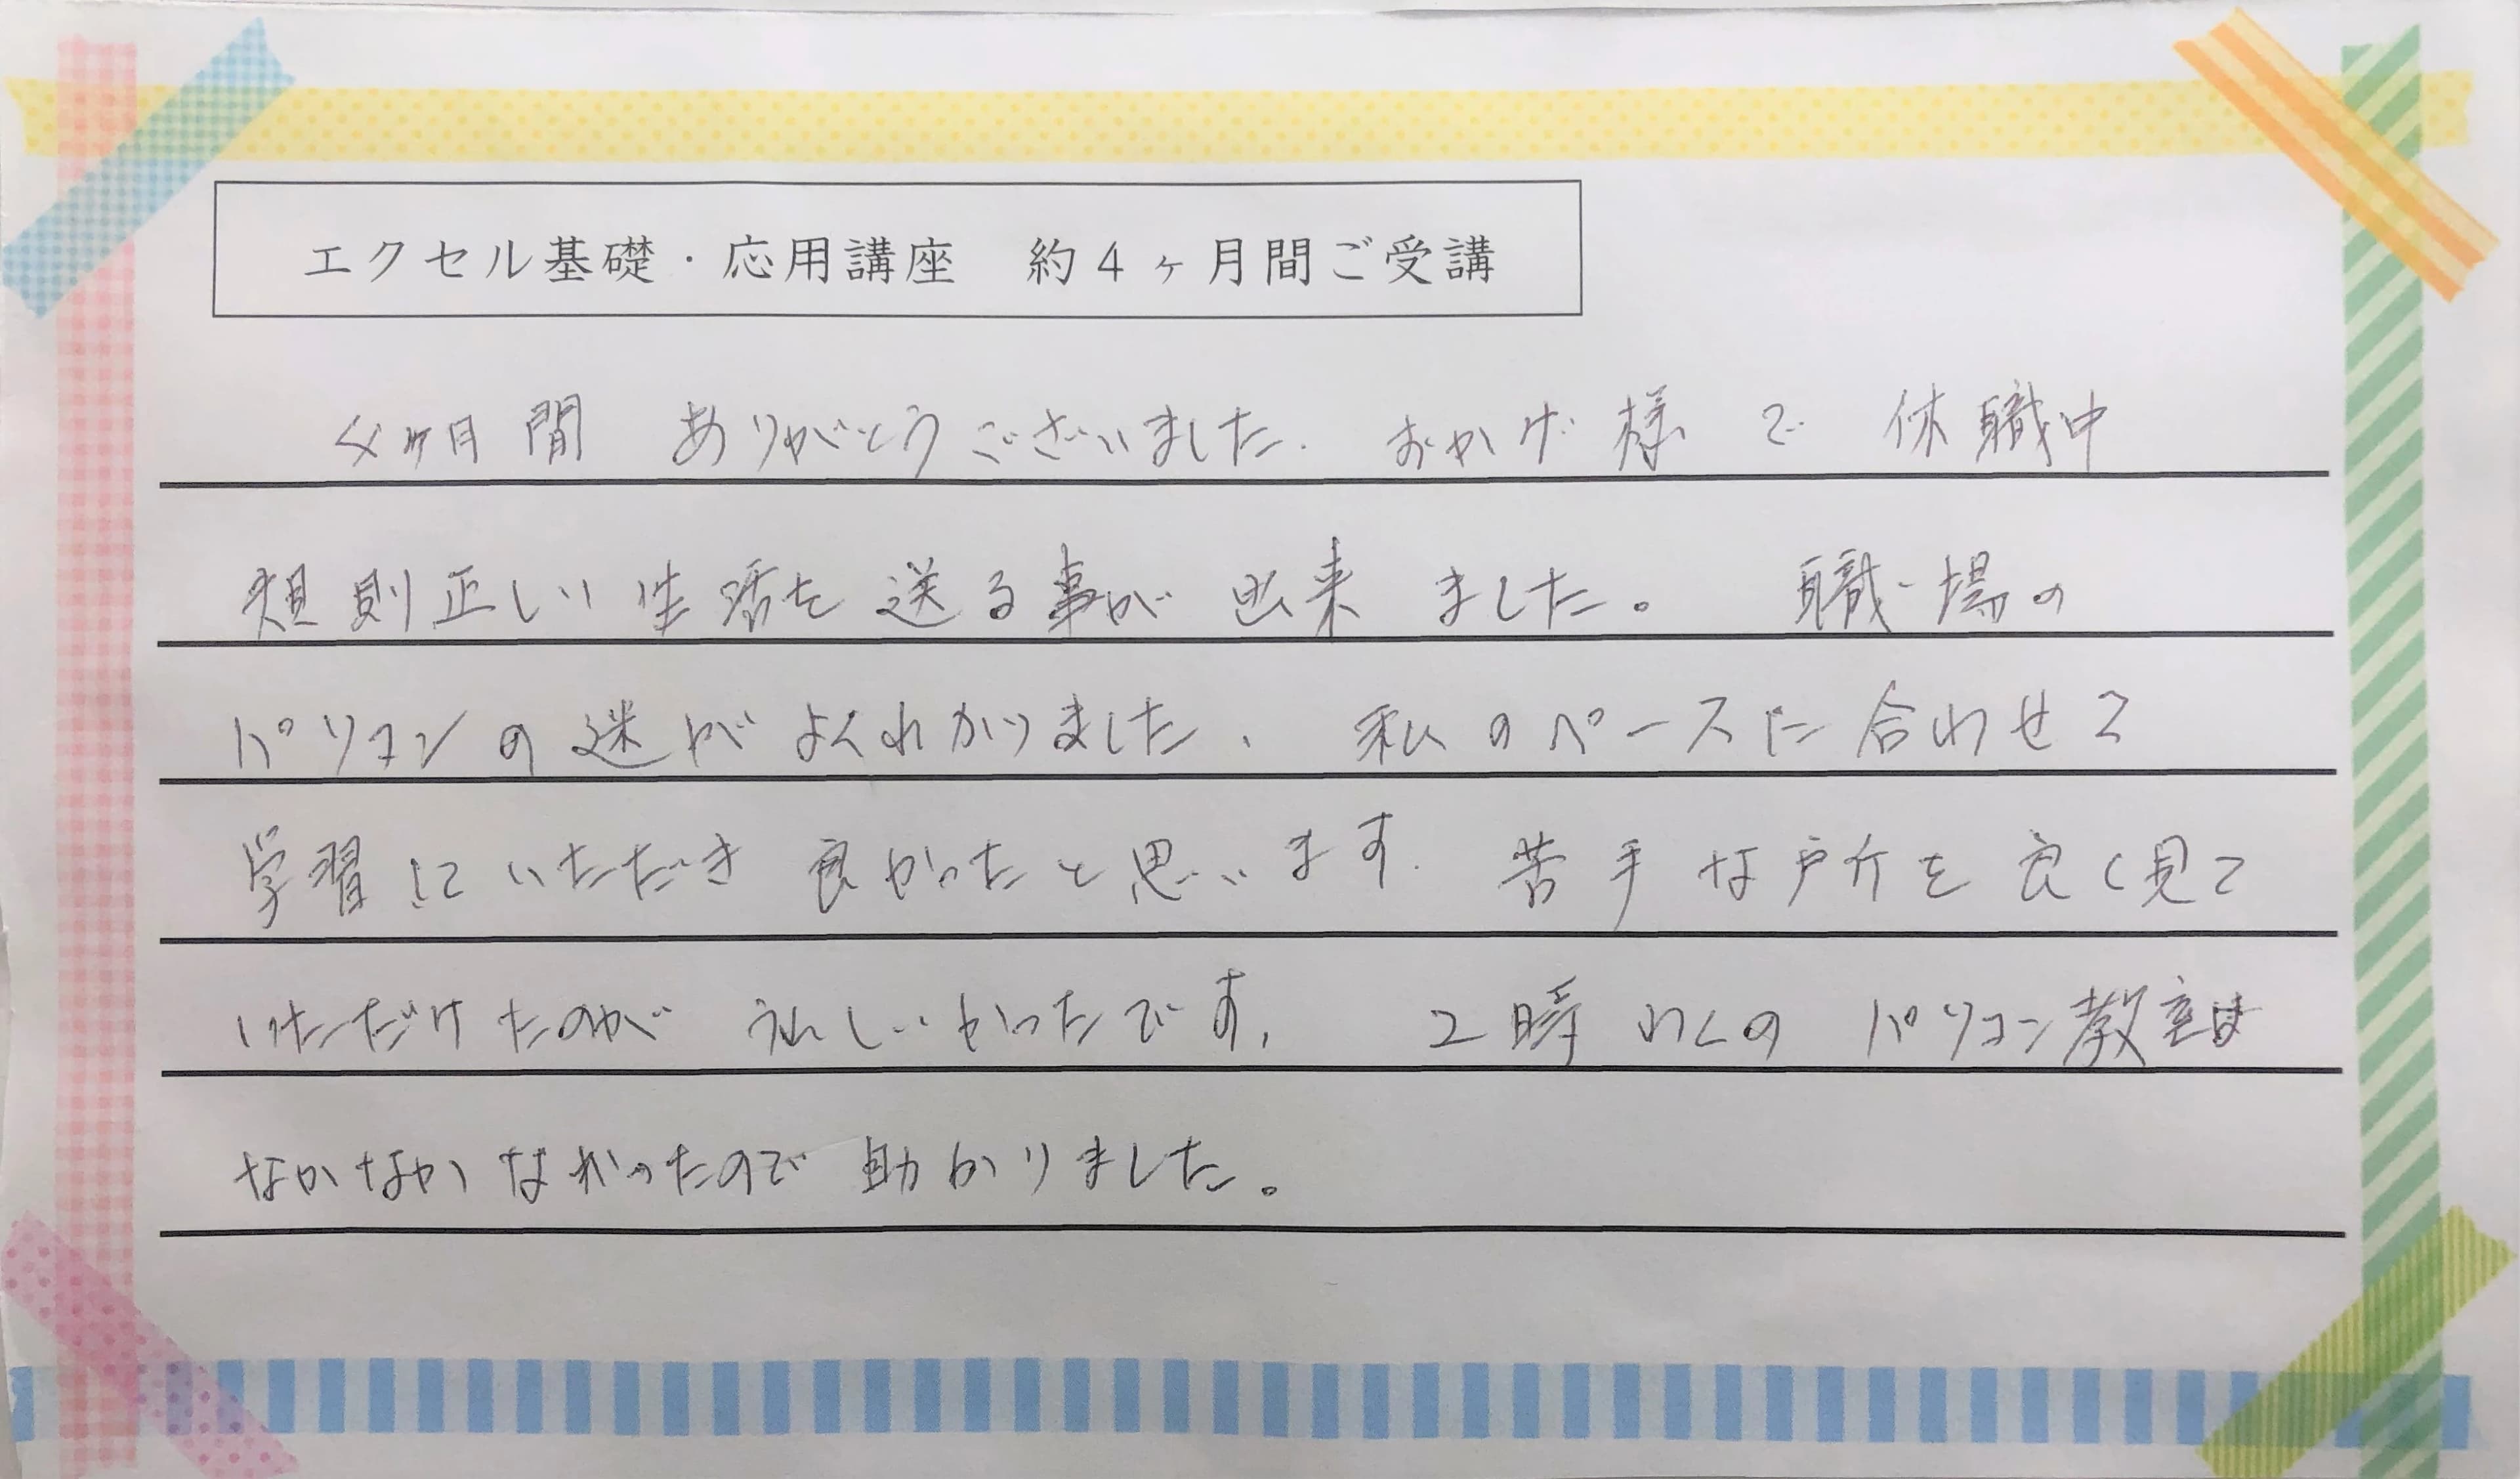 エクセル基礎・応用講座　約４ヶ月間ご受講
4ヶ月間 ありがとうございました. おかげ様で 休職中
規則正しい生活を送る事が出来ました。 職場の
パソコンの迷がよくわかりました、私のペースに合わせて
学習していただき良かったと思います. 苦手な所を良く見て
いただけたのがうれしかったです, 2時 わくの パソコン教室は
なかなかなかったので助かりました。